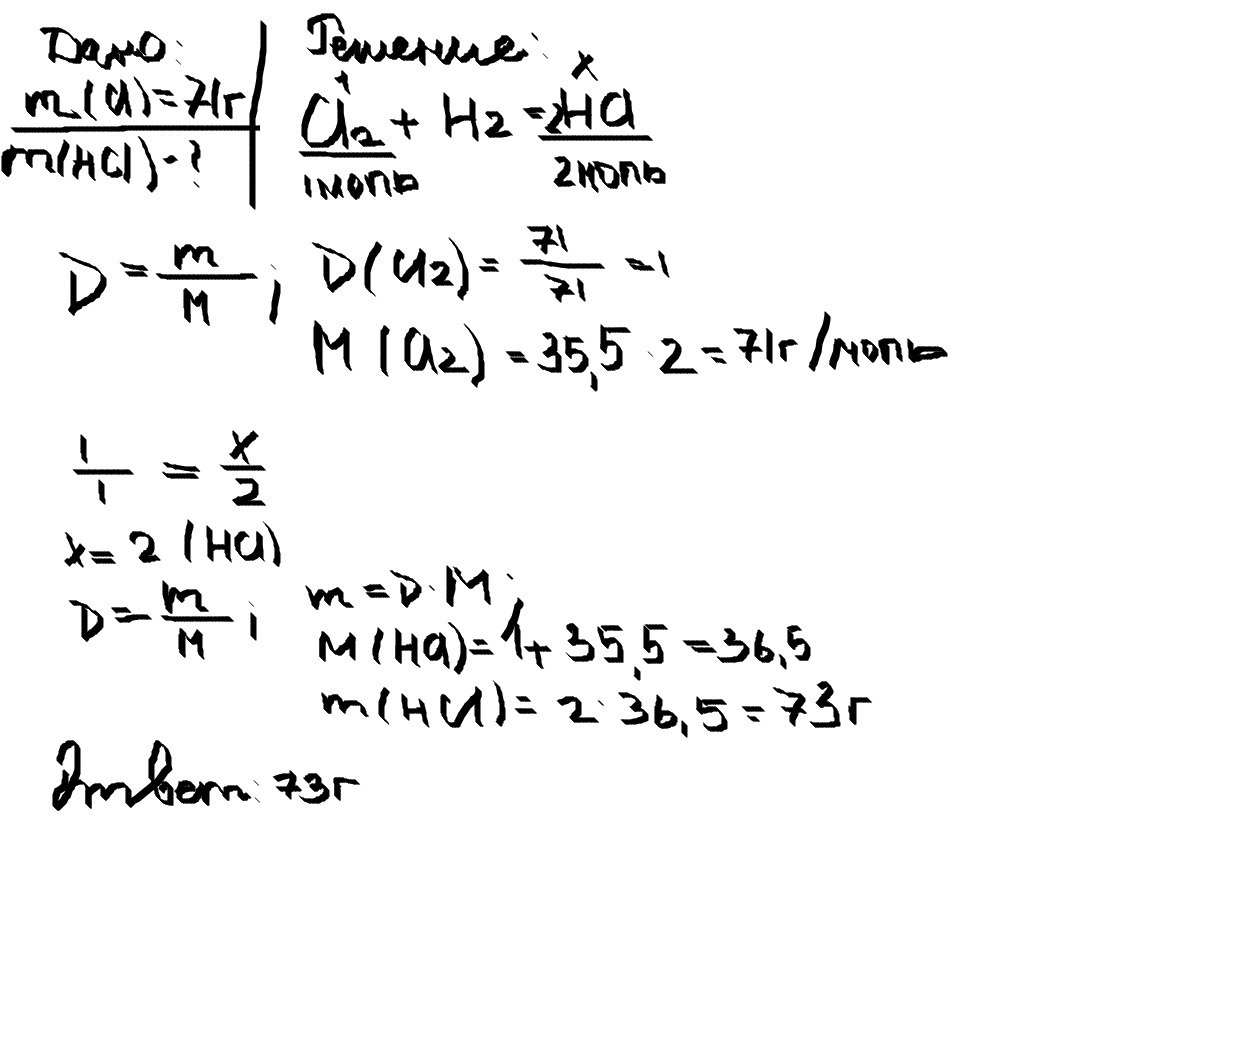 Дано: Решение:
m(Cl)=71г 1 x
Cl2 + H2 = 2HCl
m(HCl)-? 1моль 2моль
D = m/M; D(Cl2) = 71/71 = 1
M(Cl2) = 35,5 · 2 = 71г/моль
1/1 = x/2
x = 2 (HCl)
D = m/M; m = D · M;
M(HCl) = 1 + 35,5 = 36,5
m(HCl) = 2 · 36,5 = 73г
Ответ: 73г